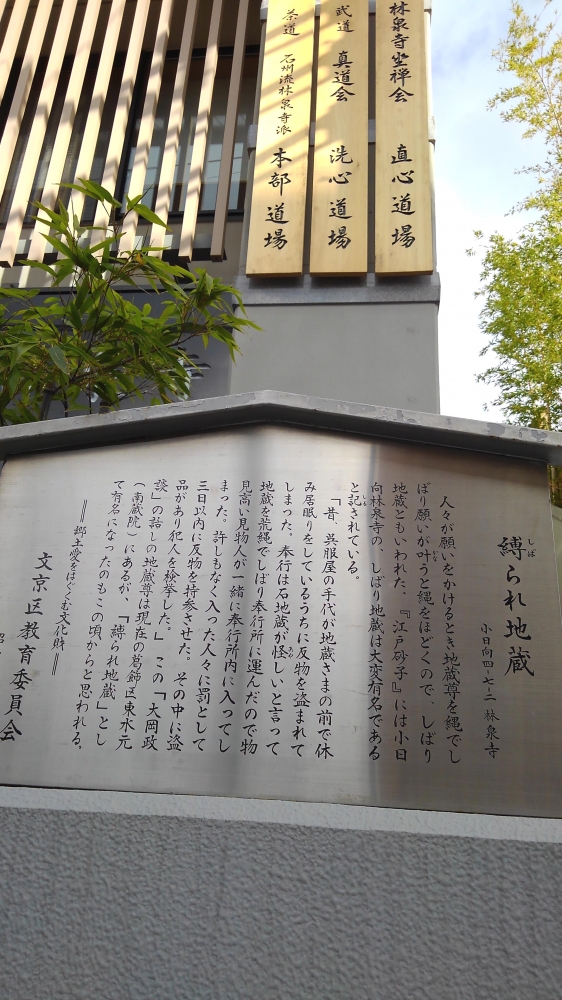 林泉寺坐禅会 直心道場
武道 真道会 洗心道場
茶道 石州流林泉寺派 本部道場
縛られ地蔵
しば
小日向四-七-二 林泉寺
人々が願いをかけるとき地蔵尊を縄でし
ばり願いが叶うと縄をほどくので、しばり
地蔵ともいわれた。『江戸砂子』には小日
向林泉寺の、しばり地蔵は大変有名である
と記されている。
「昔、呉服屋の手代が地蔵さまの前で休
み居眠りをしているうちに反物を盗まれて
しまった。奉行は石地蔵が怪しいと言って
地蔵を荒縄でしばり奉行所に運んだので物
見高い見物人が一緒に奉行所内に入ってし
まった。許しもなく入った人々に罰として
三日以内に反物を持参させた。その中に盗
品があり犯人を検挙した。」この「大岡政
談」の話しの地蔵尊は現在の葛飾区東水元
(南蔵院)にあるが、「縛られ地蔵」とし
て有名になったのもこの頃からと思われる。
＝郷土愛をはぐくむ文化財＝
文京区教育委員会